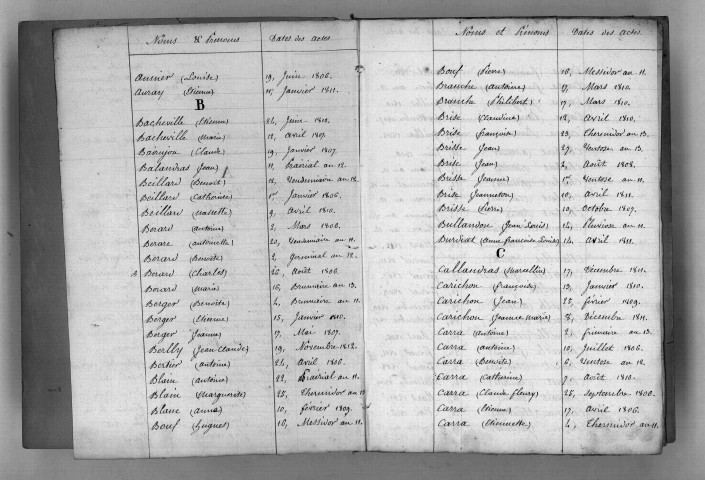 Noms & Prénoms Dates des actes
Aunier (Louise) 19, Juin 1806.
Auray (Etienne) 11, Janvier 1811.
B
Bacheville (Etienne) 24, Juin 1810.
Bacheville (Marie) 12, avril 1807.
Badinjon (Claude) 19, Janvier 1807.
Balandras (Jean) 11, Prairial an 12.
Beillard (Benoit) 12, Vendemiaire an 12.
Beillard (Catherine) 1er Janvier 1806.
Beillard 9, avril 1810.
Berard (antoine) 2, Mars 1806.
Berard (antoinette) 20, Vendemiaire an 11.
Berard (Benoite) 2, germinal an 12.
Berard (Charles) 26, Août 1806.
Berard (Marie) 16, Brumaire an 13.
Berger (Benoite) 4, Brumaire an 11.
Berger (Etienne) 15, Janvier 1810.
Berger (Jeanne) 17, Mai 1807.
Berlly (Jean Claude) 19, Novembre 1812.
Bertier (antoine) 24, avril 1806.
Blain (antoine) 22, Prairial an 11.
Blain (Marguerite) 25, Thermidor an 11.
Blanc (anna) 10, février 1809.
Bouf (hugues) 16, Messidor an 11.
Noms et Prénoms Dates des actes.
Bouf (Pierre) 16, Messidor an 11.
Branche (antoine) 17, Mars 1810.
Branche (Philibert) 17, Mars 1810.
Brise (Claudine) 12, Avril 1810.
Brise (françoise) 23, Thermidor an 13.
Brisse (Jean) 27, Ventose an 13.
Brise (Jean) 2, Août 1808.
Brisse (Jeanne) 1er Ventose an 11.
Brise (Jeanneton) 10, avril 1811.
Brisse (Pierre) 10, octobre 1807.
Bullandon (Jean Louis) 14, Pluviose an 11.
Burdiat (Anne françoise Louise) 14, Avril 1811.
C
Callandras (Marcellin) 17, Décembre 1811.
Carichon (françoise) 13, Janvier 1810.
Carichon (Jean) 25, février 1809.
Carichon (Jeanne Marie) 8, Décembre 1811.
Carra (antoine) 2, frimaire an 13.
Carra (antoine) 10, Juillet 1806.
Carra (Benoite) 6, Ventose an 12.
Carra (Catherine) 7, août 1810.
Carra (Claude fleury) 25, Septembre 1806.
Carra (Etienne) 17, Avril 1806.
Carra (Etiennette) 4, Thermidor an 11.